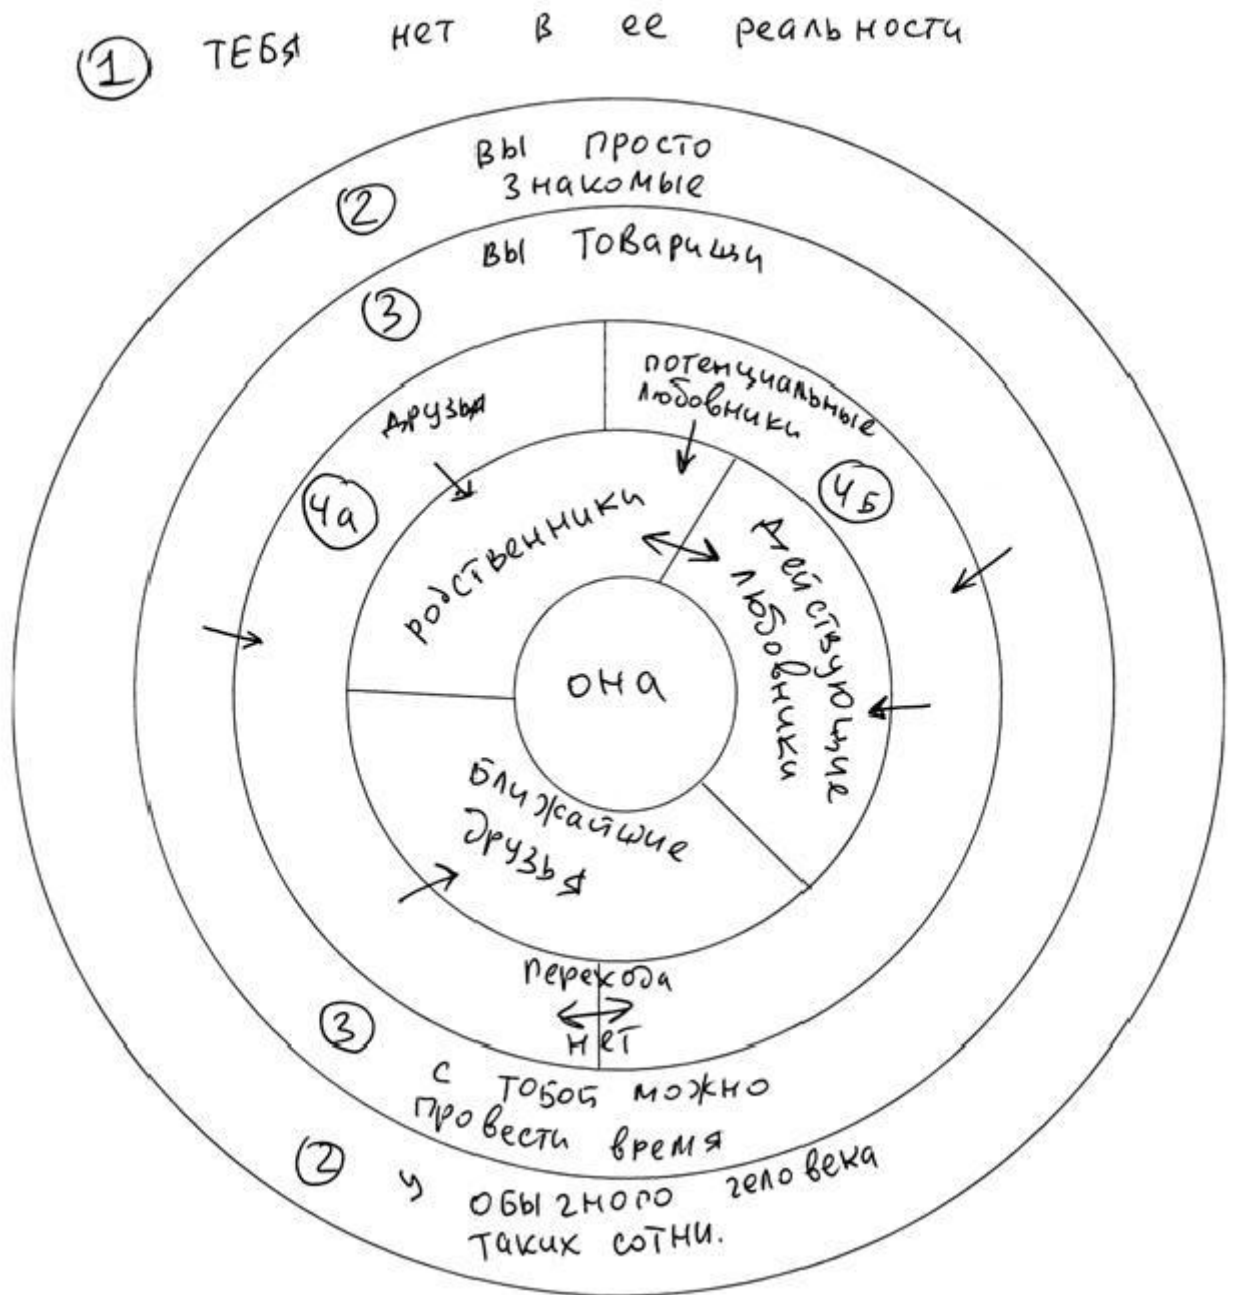 1 ТЕБЯ нет в ее реальности
вы просто
знакомые
2
вы товарищи
3
потенциальные
любовники
друзья
4а
4Б
родственники
действующие
любовники
она
ближайшие
друзья
перехода
нет
3
с тобой можно
провести время
2
у обычного человека
таких сотни.